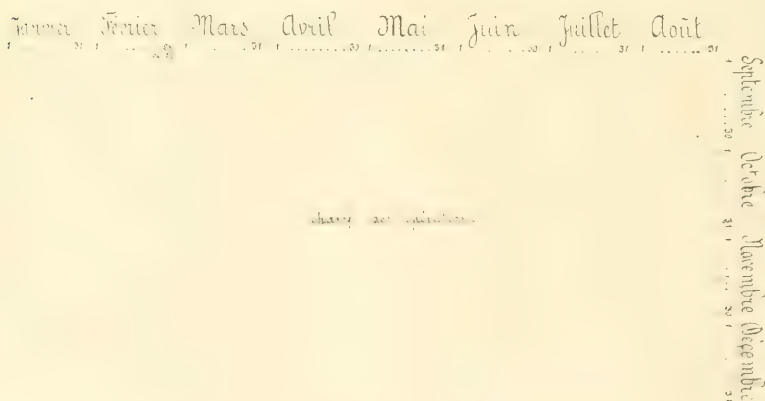 Janvier Février Mars Avril Mai Juin Juillet Août
1 31 1 1 . . 31 1 ........ 30 1 ........ 31 1 . .... 30 1 . .... 31 1 ........ 31
Septembre Octobre Novembre Décembre
1 . .... 30 1 . 31 1 . .... 30 1 . 31